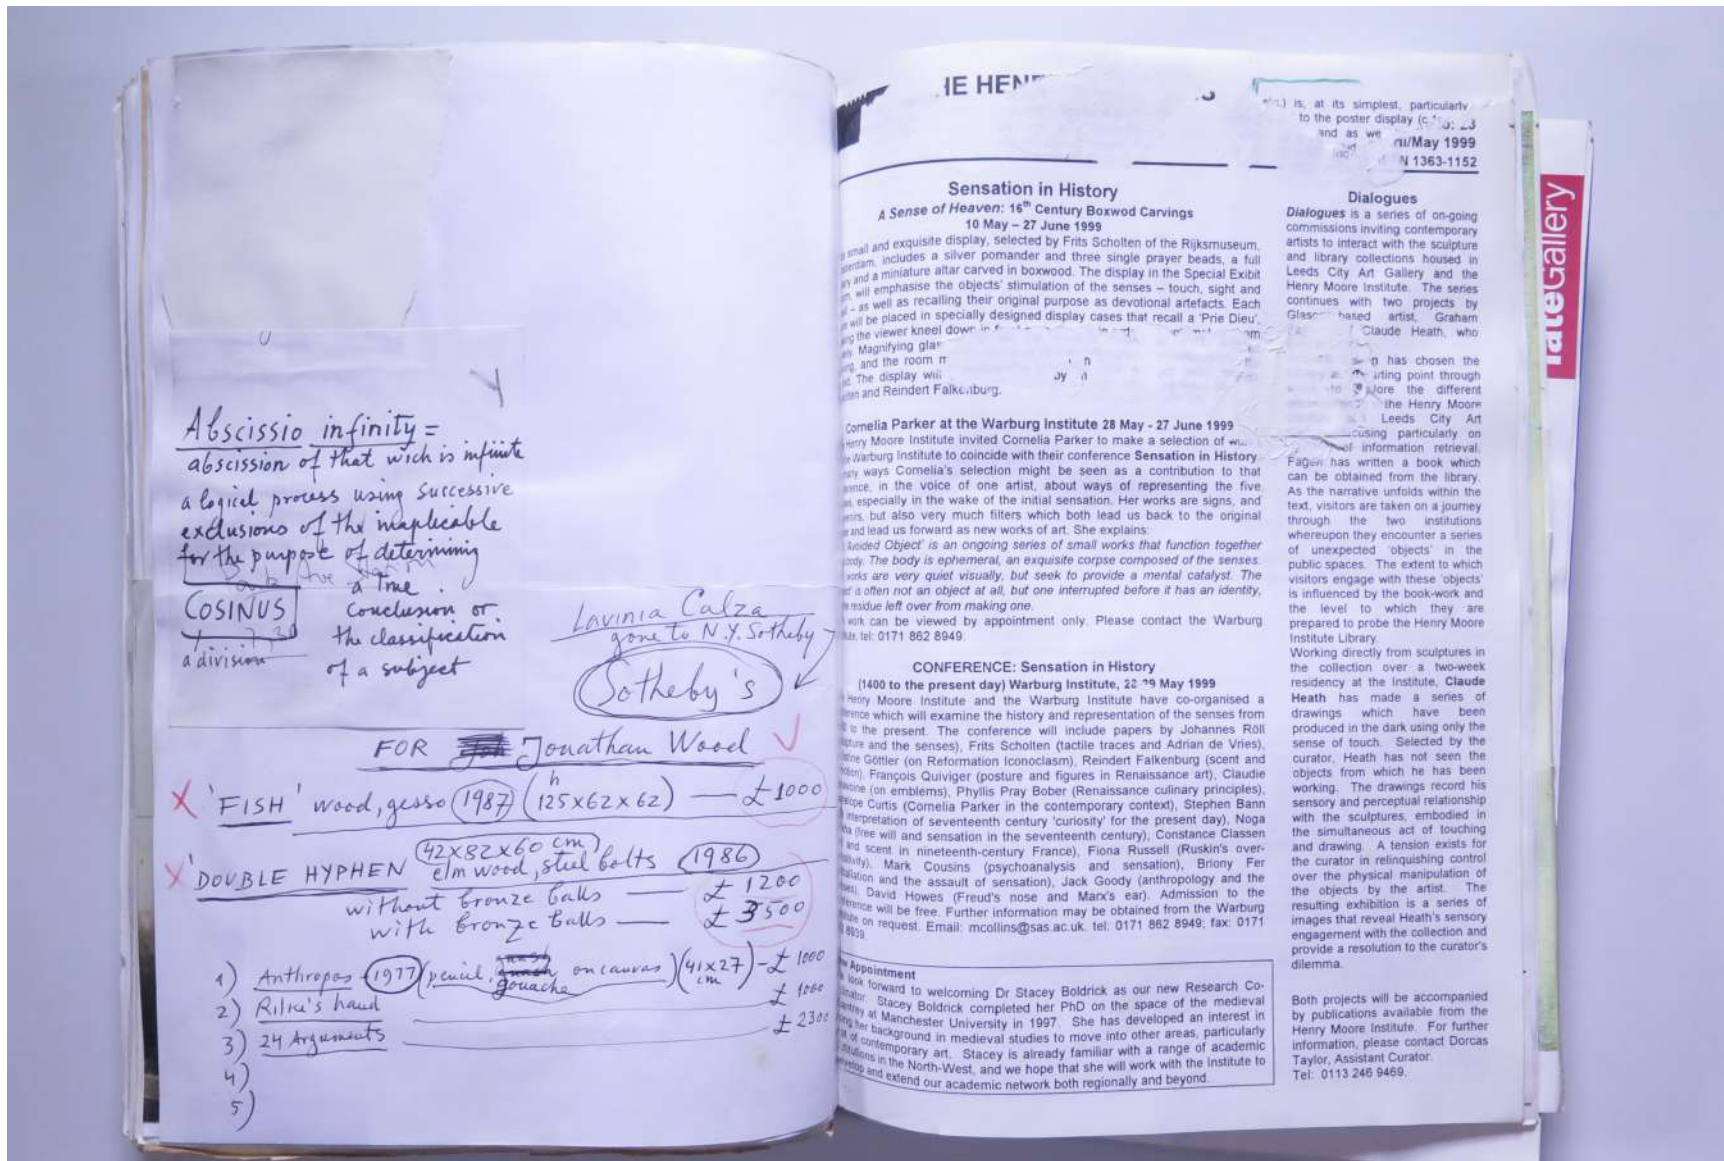 Abscissio infinity =
abscission of that wich is infinite
a logical process using successive
exclusions of the inaplicable
for the purpose of determining
a true
COSINUS
conclusion or
the classification
a division
of a subject
Lavinia Calza
gone to N.Y. Sotheby
Sotheby's
FOR Jonathan Wood
'FISH' wood, gesso (1987) (h 125x62x62) — £1000
42x82x60 cm
'DOUBLE HYPHEN elm wood, steel bolts (1986)
without bronze balls — £ 1200
with bronze balls — £ 3500
1) Anthropos (1977) (pencil, gouache on canvas) (41x27 cm) - £ 1000
2) Rilke's hand £ 1000
3) 24 Arguments £ 2300
4)
5)
HE HEN
is, at its simplest, particularly
to the poster display
and as we
/May 1999
N 1363-1152
Sensation in History
A Sense of Heaven: 16th Century Boxwod Carvings
10 May – 27 June 1999
small and exquisite display, selected by Frits Scholten of the Rijksmuseum,
includes a silver pomander and three single prayer beads, a full
and a miniature altar carved in boxwood. The display in the Special Exibit
will emphasise the objects' stimulation of the senses – touch, sight and
– as well as recalling their original purpose as devotional artefacts. Each
will be placed in specially designed display cases that recall a 'Prie Dieu',
the viewer kneel down
Magnifying
and the room
The display will by
and Reindert Falkenburg.
Cornelia Parker at the Warburg Institute 28 May - 27 June 1999
Henry Moore Institute invited Cornelia Parker to make a selection of
Warburg Institute to coincide with their conference Sensation in History
ways Cornelia's selection might be seen as a contribution to that
in the voice of one artist, about ways of representing the five
especially in the wake of the initial sensation. Her works are signs, and
but also very much filters which both lead us back to the original
and lead us forward as new works of art. She explains:
Avoided Object' is an ongoing series of small works that function together
body. The body is ephemeral, an exquisite corpse composed of the senses.
works are very quiet visually, but seek to provide a mental catalyst. The
is often not an object at all, but one interrupted before it has an identity,
residue left over from making one.
work can be viewed by appointment only. Please contact the Warburg
tel: 0171 862 8949.
CONFERENCE: Sensation in History
(1400 to the present day) Warburg Institute, 28-29 May 1999
Henry Moore Institute and the Warburg Institute have co-organised a
which will examine the history and representation of the senses from
to the present. The conference will include papers by Johannes Röll
and the senses), Frits Scholten (tactile traces and Adrian de Vries),
Göttler (on Reformation Iconoclasm), Reindert Falkenburg (scent and
François Quiviger (posture and figures in Renaissance art), Claudie
(on emblems), Phyllis Pray Bober (Renaissance culinary principles),
Curtis (Cornelia Parker in the contemporary context), Stephen Bann
interpretation of seventeenth century 'curiosity' for the present day), Noga
(free will and sensation in the seventeenth century), Constance Classen
and scent in nineteenth-century France), Fiona Russell (Ruskin's over-
Mark Cousins (psychoanalysis and sensation), Briony Fer
and the assault of sensation), Jack Goody (anthropology and the
David Howes (Freud's nose and Marx's ear). Admission to the
will be free. Further information may be obtained from the Warburg
on request. Email: mcollins@sas.ac.uk. tel: 0171 862 8949; fax: 0171
8939.
Appointment
look forward to welcoming Dr Stacey Boldrick as our new Research Co-
Stacey Boldrick completed her PhD on the space of the medieval
at Manchester University in 1997. She has developed an interest in
her background in medieval studies to move into other areas, particularly
of contemporary art. Stacey is already familiar with a range of academic
in the North-West, and we hope that she will work with the Institute to
and extend our academic network both regionally and beyond.
Dialogues
Dialogues is a series of on-going
commissions inviting contemporary
artists to interact with the sculpture
and library collections housed in
Leeds City Art Gallery and the
Henry Moore Institute. The series
continues with two projects by
based artist, Graham
Claude Heath, who
has chosen the
starting point through
explore the different
the Henry Moore
Leeds City Art
particularly on
of information retrieval.
Fagen has written a book which
can be obtained from the library.
As the narrative unfolds within the
text, visitors are taken on a journey
through the two institutions
whereupon they encounter a series
of unexpected 'objects' in the
public spaces. The extent to which
visitors engage with these 'objects'
is influenced by the book-work and
the level to which they are
prepared to probe the Henry Moore
Institute Library.
Working directly from sculptures in
the collection over a two-week
residency at the Institute, Claude
Heath has made a series of
drawings which have been
produced in the dark using only the
sense of touch. Selected by the
curator, Heath has not seen the
objects from which he has been
working. The drawings record his
sensory and perceptual relationship
with the sculptures, embodied in
the simultaneous act of touching
and drawing. A tension exists for
the curator in relinquishing control
over the physical manipulation of
the objects by the artist. The
resulting exhibition is a series of
images that reveal Heath's sensory
engagement with the collection and
provide a resolution to the curator's
dilemma.
Both projects will be accompanied
by publications available from the
Henry Moore Institute. For further
information, please contact Dorcas
Taylor, Assistant Curator.
Tel: 0113 246 9469.
TateGallery